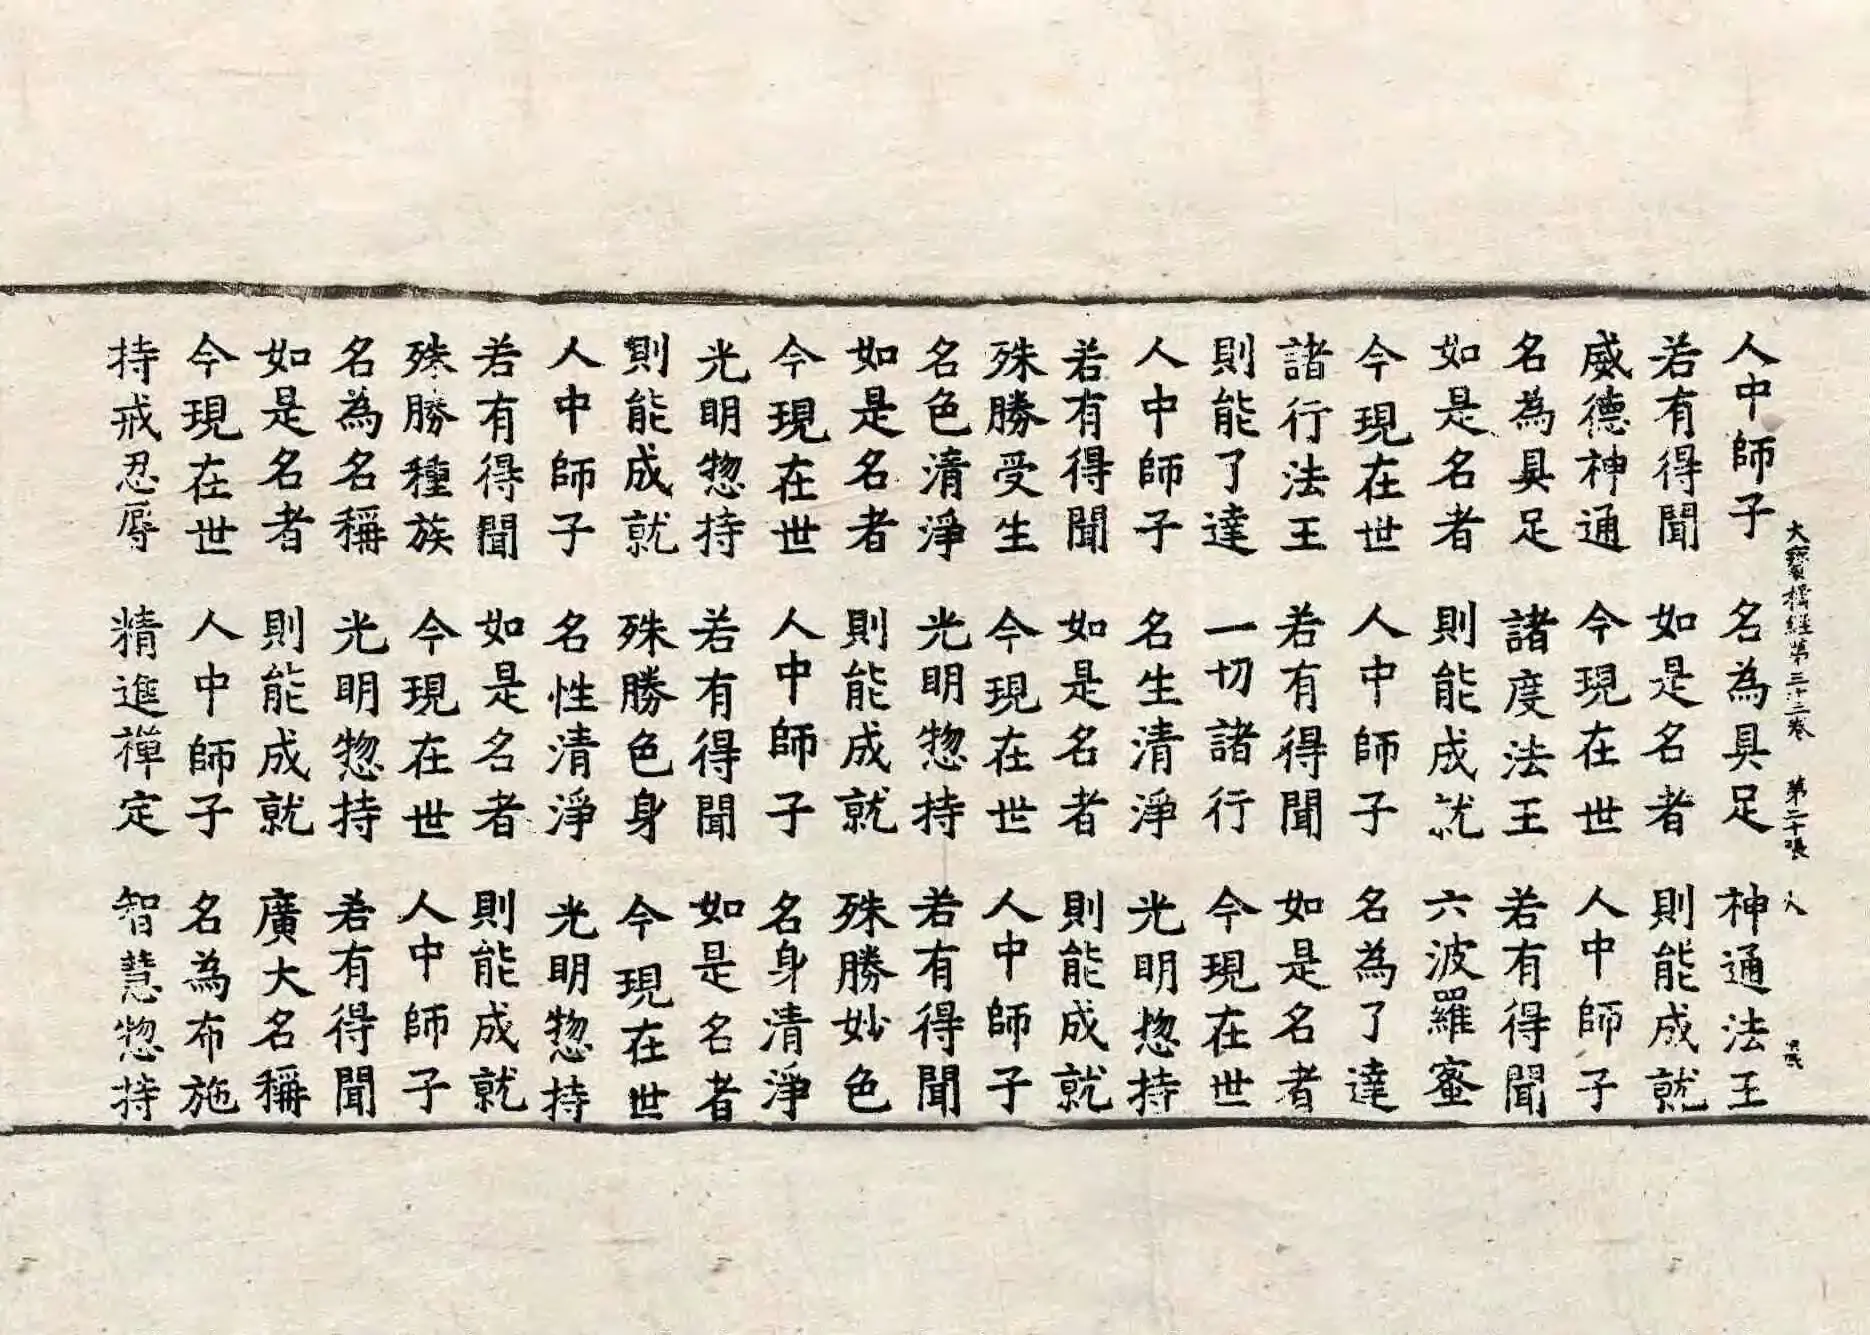 大寶積經第三十三卷 第二十張 人
人中師子 名為具足 神通法王
若有得聞 如是名者 則能成就
威德神通 今現在世 人中師子
名為具足 諸度法王 若有得聞
如是名者 則能成就 六波羅蜜
今現在世 人中師子 名為了達
諸行法王 若有得聞 如是名者
則能了達 一切諸行 今現在世
人中師子 名生清淨 光明惣持
若有得聞 如是名者 則能成就
殊勝受生 今現在世 人中師子
名色清淨 光明惣持 若有得聞
如是名者 則能成就 殊勝妙色
今現在世 人中師子 名身清淨
光明惣持 若有得聞 如是名者
則能成就 殊勝色身 今現在世
人中師子 名性清淨 光明惣持
若有得聞 如是名者 則能成就
殊勝種族 今現在世 人中師子
名為名稱 光明惣持 若有得聞
如是名者 則能成就 廣大名稱
今現在世 人中師子 名為布施
持戒忍辱 精進禪定 智慧惣持